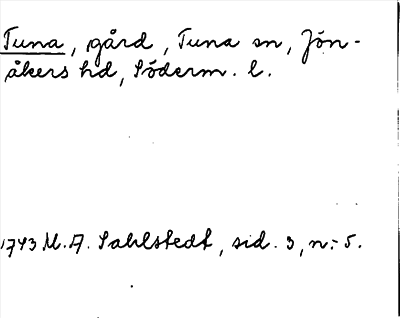 Tuna, gård, Tuna sn, Jön-
åkers hd, Söderm. l.
1743 M.A. Sahlstedt, sid. 3, n:- 5.